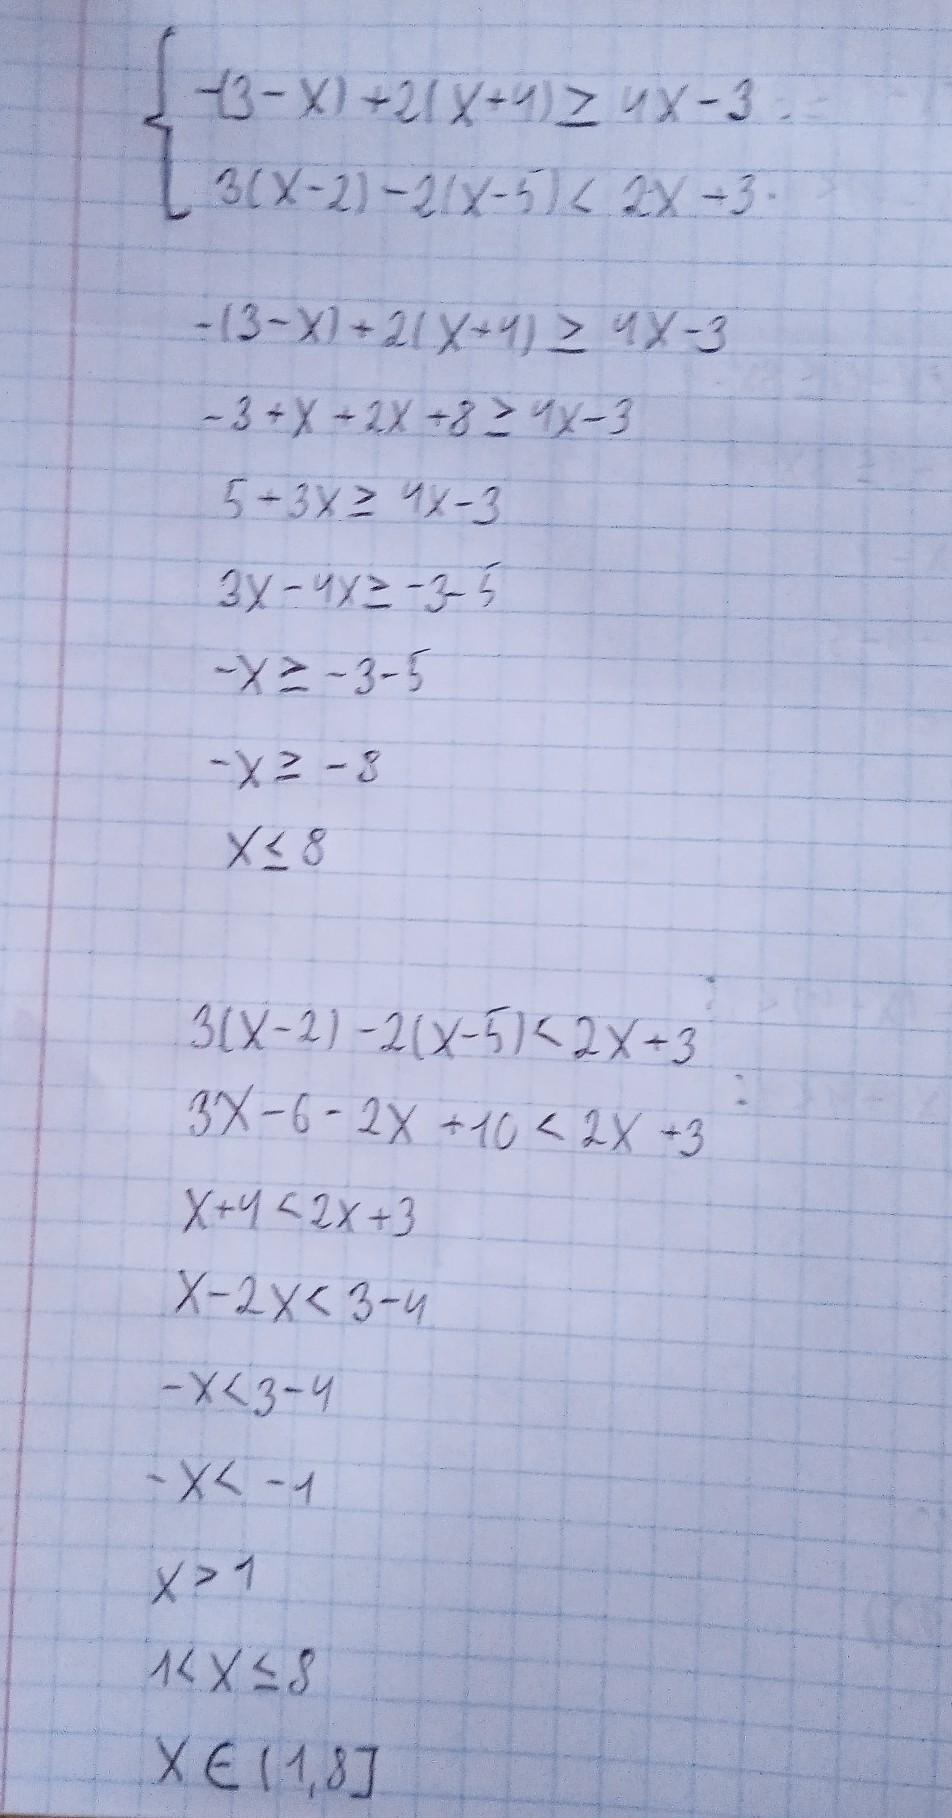 -(3-x)+2(x+4)≥4x-3
3(x-2)-2(x-5)<2x+3
-(3-x)+2(x+4)≥4x-3
-3+x+2x+8≥4x-3
5+3x≥4x-3
3x-4x≥-3-5
-x≥-3-5
-x≥-8
x≤8
3(x-2)-2(x-5)<2x+3
3x-6-2x+10<2x+3
x+4<2x+3
x-2x<3-4
-x<3-4
-x<-1
x>1
1<x≤8
x∈(1,8]